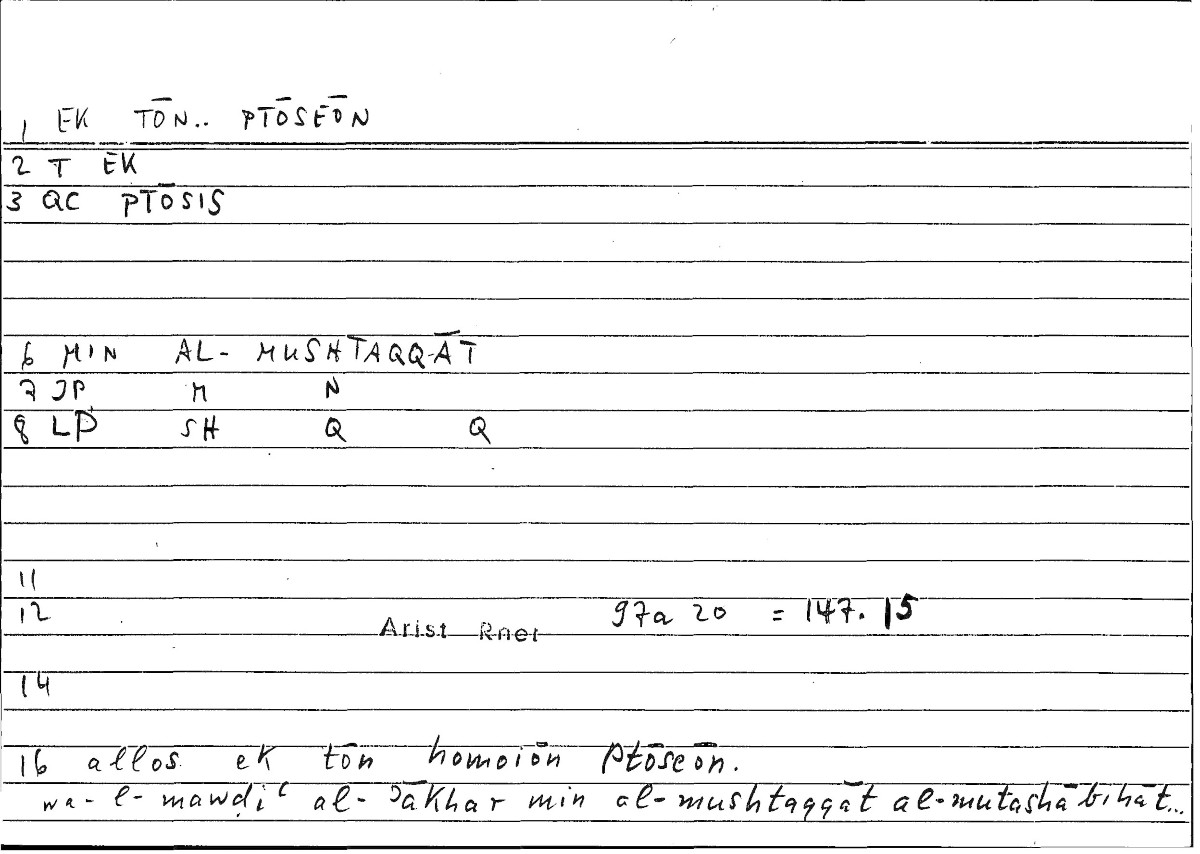 1 EK TŌN.. PTŌSEŌN
2 T EK
3 QC PTŌSIS
6 MIN AL- MUSHTAQQ-ĀT
7 JP M N
8 LP SH Q Q
11
12 Arist Rhet 97a 20 = 147.15
14
16 allos ek tōn homoiōn ptōseōn.
wa-l-mawḍiʿ al-ʾākhar min al-mushtaqqāt al-mutashābihāt...